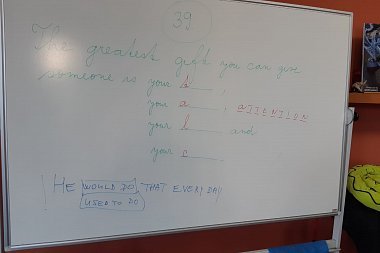 39
The greatest gift you can give
someone is your t___,
your a___, ATTENTION
your l___ and
your c___
! HE WOULD DO THAT EVERY DAY
USED TO DO